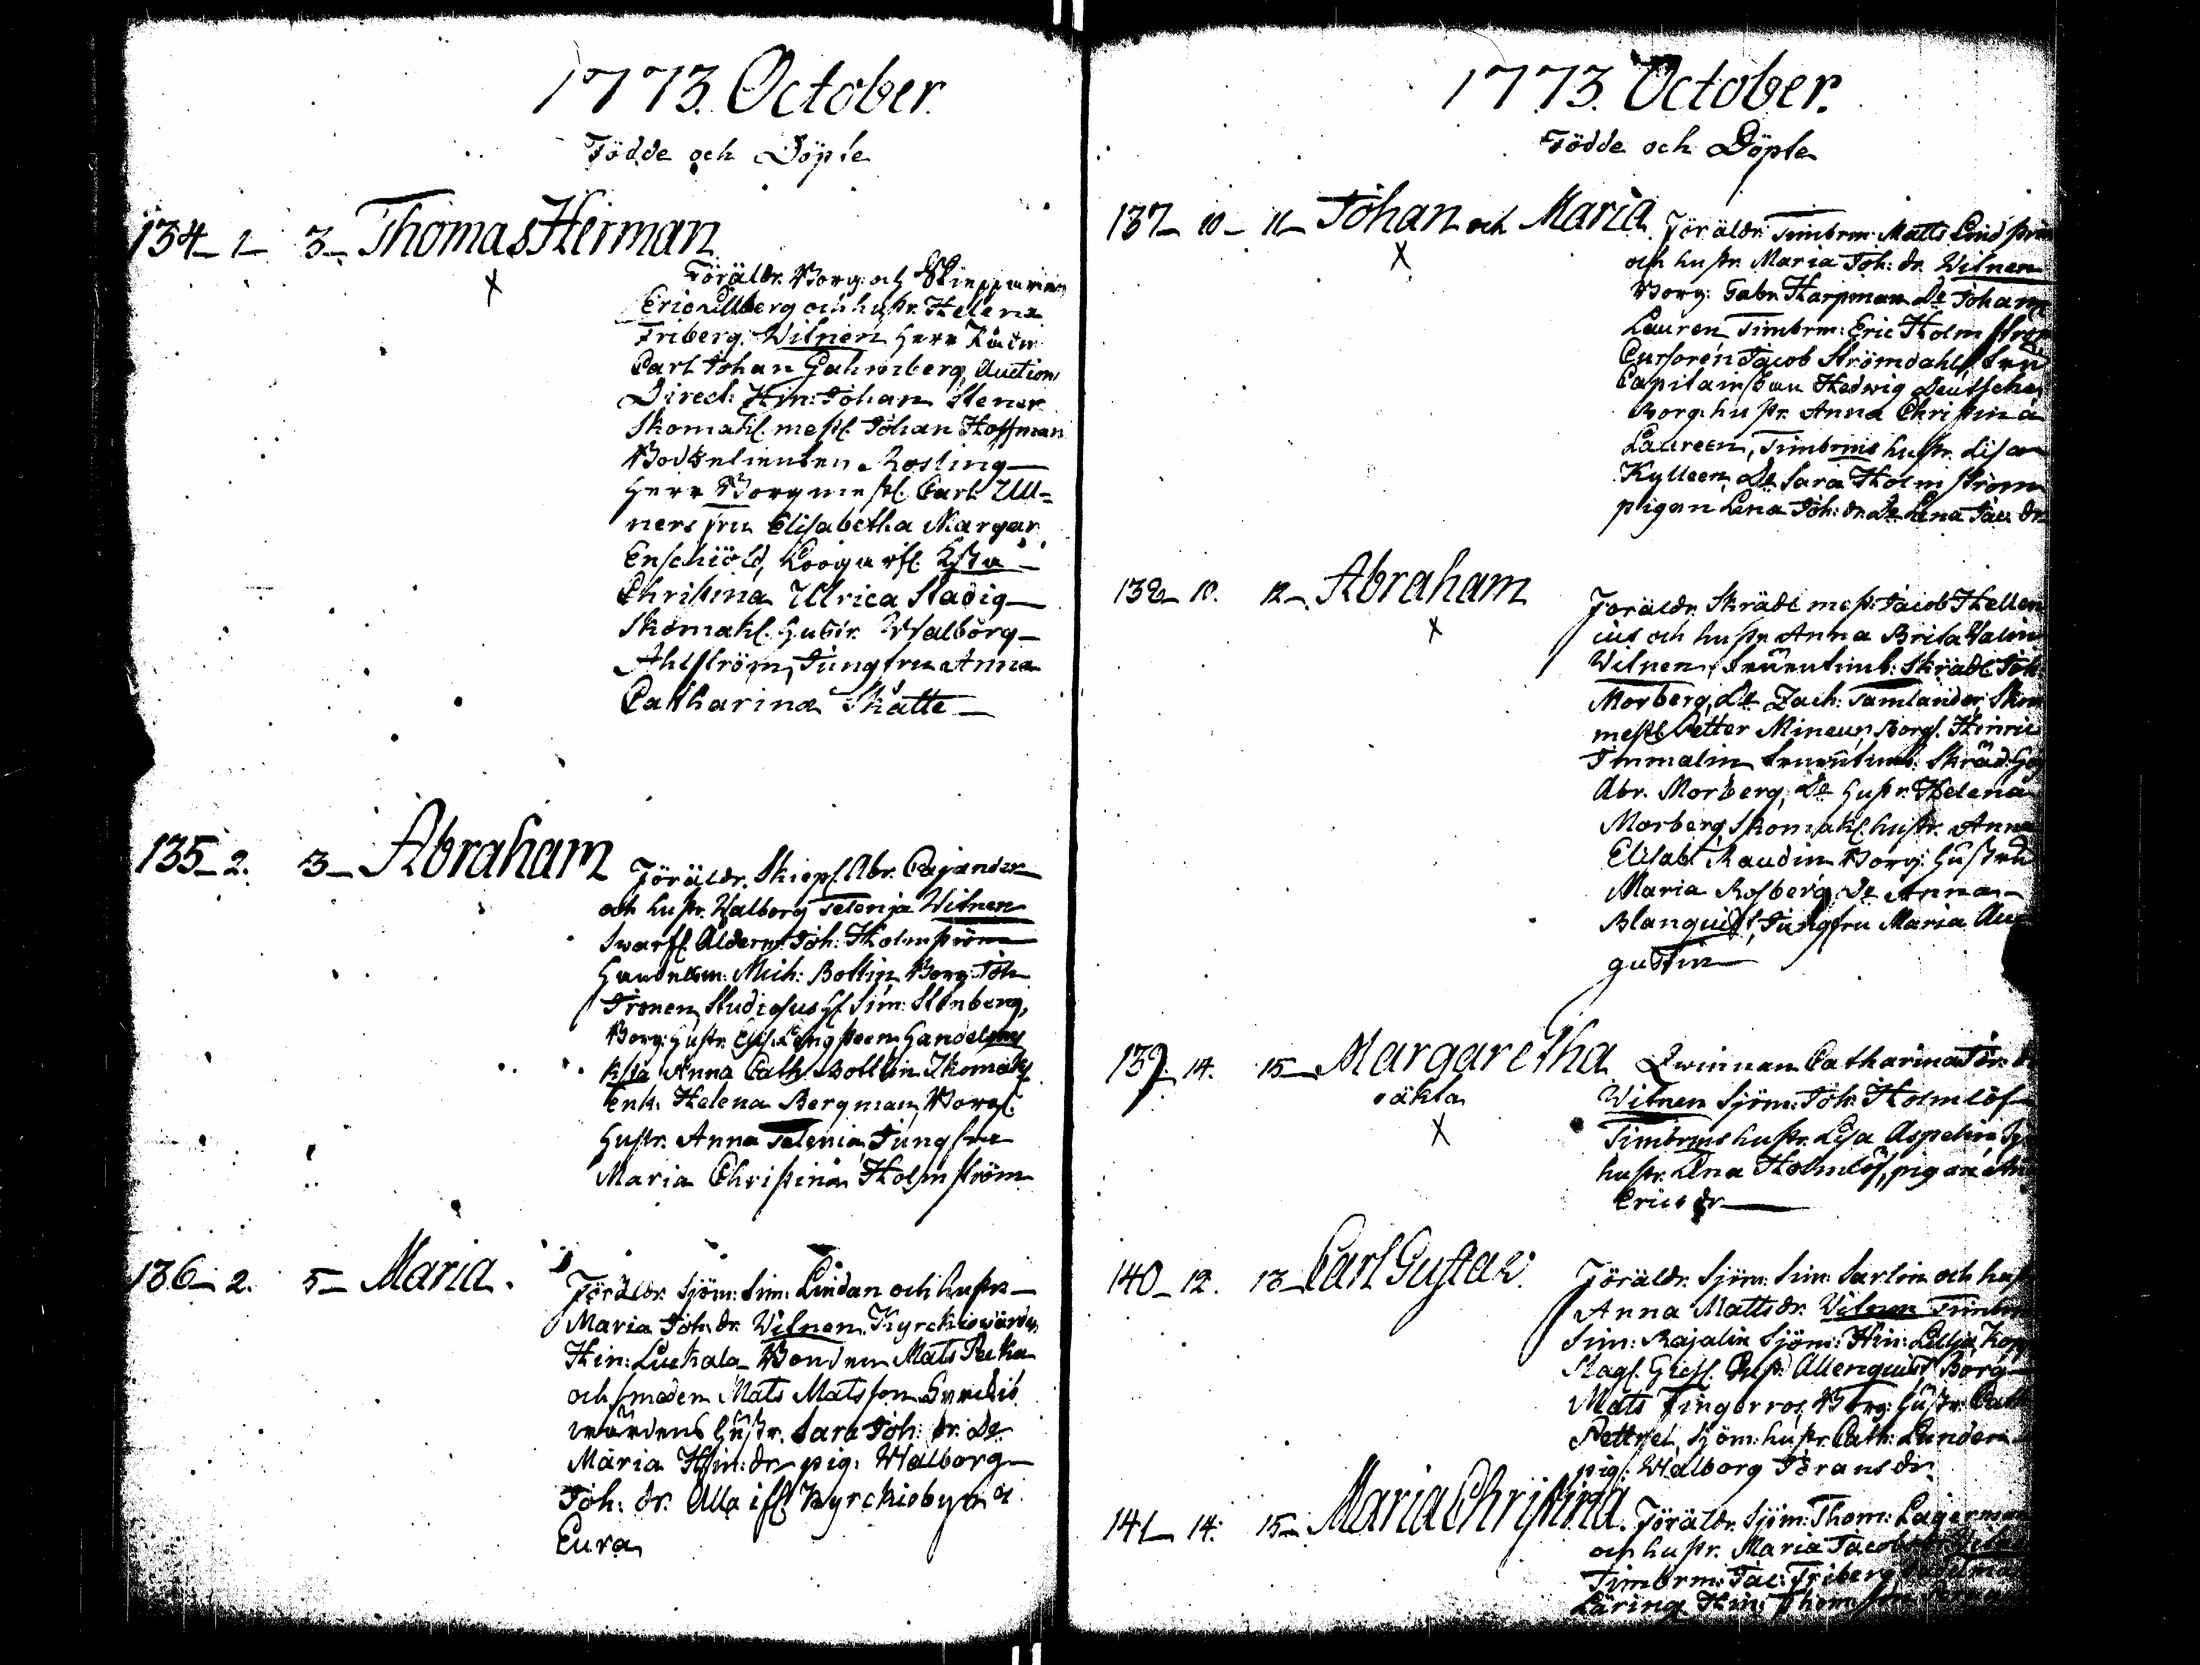 1773. October.
Födde och Döpte
134_ 1_ 3_ Thomas Herman
Föräldr. Borg: och Skepparen
Eric Ullberg och hustr. Helena
Friberg. Witnen Herr Rådm
Carl Johan Gahmberg, Auctions
Direct: Hin: Johan Stener
Skomak. mest. Johan Hoffman
Rosling
Herr Borgmest. Carl Ull=
ners fru Elisabetha Margar.
Enschiöld,
Christina Ulrica Stadig
Skomak. hustr. Walborg
Ahlström, Jungfru Anna
Catharina Skatte
135_ 2. 3_ Abraham
Föräldr. Skiep. Abr. Cajander
och hustr. Walborg Telenia Witnen
Swarf. Alderm: Joh: Holmström
Handelsm: Mich: Bottin, Borg: Joh
Ironen, Studiosus H. Sim: Stenberg,
Borg: hustr. Handelsm
Anna Cath: Bottin Skomak
Enk: Helena Bergman, Borg.
hustr. Anna Telenia, Jungfru
Maria Christina Holmström
136_ 2. 5_ Maria.
Föräldr. Sjöm: Sim: Lindan och hustr
Maria Joh: dr. Witnen. Kyrckiowärden
Hin: Luckala Bonden Mats Pecka
och smeden Mats Matsson
wärdens hustr. Sara Joh: dr. De
Maria Hin: dr pig: Walborg
Joh: dr. Alla if. Kyrckiobyn i
Eura
1773. October.
Födde och Döpte
137_ 10_ 11_ Johan och Maria
Föräldr. Timbrm: Matts Lindström
och hustr. Maria Joh: dr. Witnen
Borg: Gabr. Harpman De Johan
Lauren, Timbrm: Eric Holmström
Cursoren Jacob Strömdahl, fru
Capitainskan Hedwig
Borg: hustr. Anna Christina
Laureen, Timbrms hustr. Lisa
Kylleen, De Sara Holmström
pigan Lena Joh: dr. De Lena Jac: dr
138_ 10. 12_ Abraham
Föräldr. Skräd: mest: Jacob Hellen
ius och hustr. Anna Brita Walin
Witnen, Skräd: Joh
Morberg, De Zach: Tamlander, Skom
mest. Petter Mineur, Borg. Hinric
Immalin Skräd:
Abr. Morberg; De hustr. Helena
Morberg, Skomak. hustr. Anna
Elisab: Raudin Borg: hustru
Maria Rosberg De Anna
Blanquist, Jungfru Maria Au
gustin
139. 14. 15_ Margaretha
oäkta
Qwinnan Catharina
Witnen Sjöm: Joh: Holmlöf
Timbrms hustr. Lisa Aspelin
hustr. Lena Holmlöf, pigan
Erics dr
140_ 12. 13_ Carl Gustav.
Föräldr. Sjöm: Sim: Sarlin och hust
Anna Matts dr. Witnen
Sim: Rajalin Sjöm: Hin: Lillja Kopp
Slag. Allenquist, Borg
Mats Fingerroos, Borg: hustr. Cath
Pettrel, Sjöm: hustr. Cath: Lunden
pig: Walborg Görans dr.
141_ 14. 15_ Maria Christina.
Föräldr. Sjöm: Thom: Lagerman
och hustr. Maria Jacobs
Timbrm: Jac: Friberg
Läring